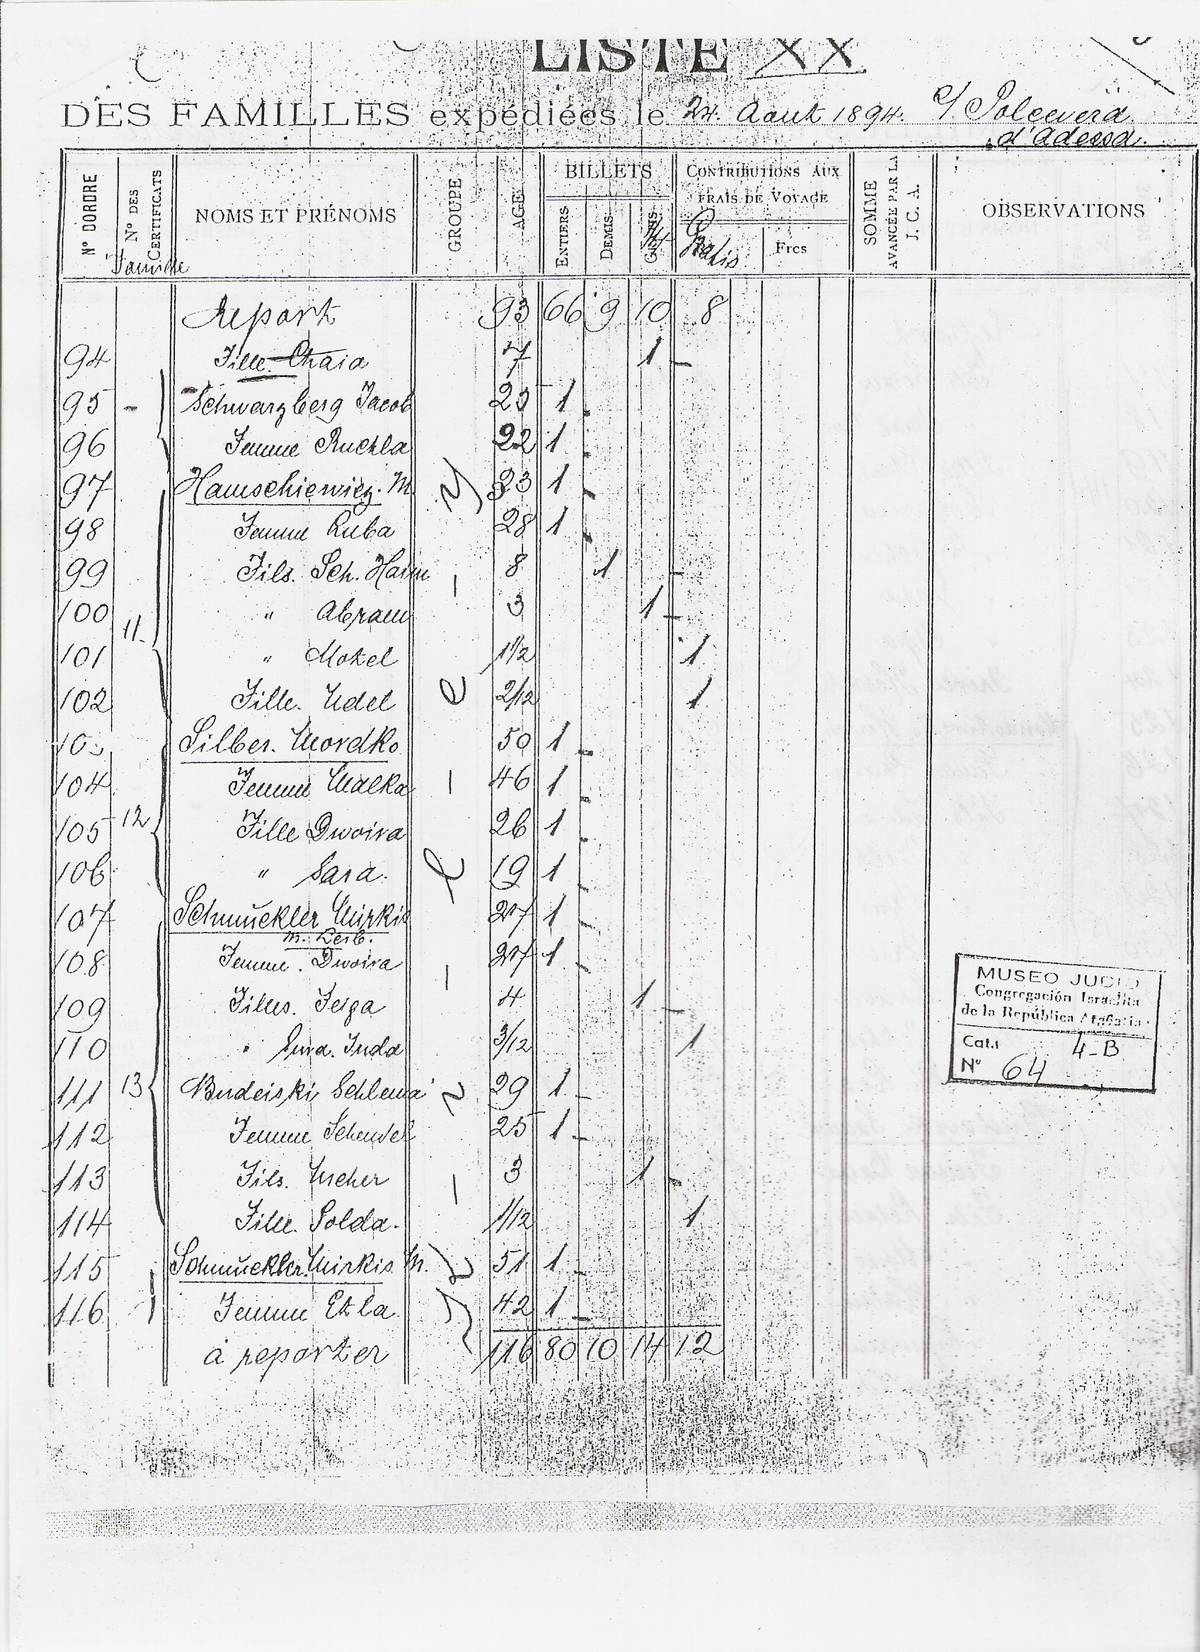 LISTE XX
DES FAMILLES expédiées le 24. Aout 1894. S/ Polcevera
d'Adessa.
N° DORDRE N° DES CERTIFICATS NOMS ET PRÉNOMS GROUPE AGE BILLETS CONTRIBUTIONS AUX FRAIS DE VOYAGE SOMME AVANCÉE PAR LA J. C. A. OBSERVATIONS
Famille ENTIERS DEMIS Gratis Frcs
Report 93 66 9 10 8
94 Fille Chaia 7 1
95 - Schwarzberg Jacob 25 1
96 Femme Ruchla 22 1
97 Hamschiewicz. M. 33 1
98 Femme Luba 28 1
99 Fils. Sch. Haim 8 1
100 " Abram 3 1
11.
101 " Mokel 1 1/2 1
102 Fille. Udel 2/12 1
10 Silber. Mordko 50 1
104 Femme Malka 46 1
105 12 Fille Dwoira 26 1
106 " Sara. 19 1
107 Schmückler Mirkis 27 1
m. Leib.
108 Femme. Dwoira 27 1
109 Filles. Fega 4 1
110 " Sura. Juda 3/12 1
111 13 Budeiski Schlema 29 1
112 Femme Schendel 25 1
113 Fils. Uscher 3 1
114 Fille. Solda. 1/12 1
115 Schmückler. Mirkis M. 51 1
116 Femme Etla 42 1
à reporter 116 80 10 14 12
MUSEO JUCIO
Congregación Israelita
de la República Argentina
Cat.: 4-B
N° 64